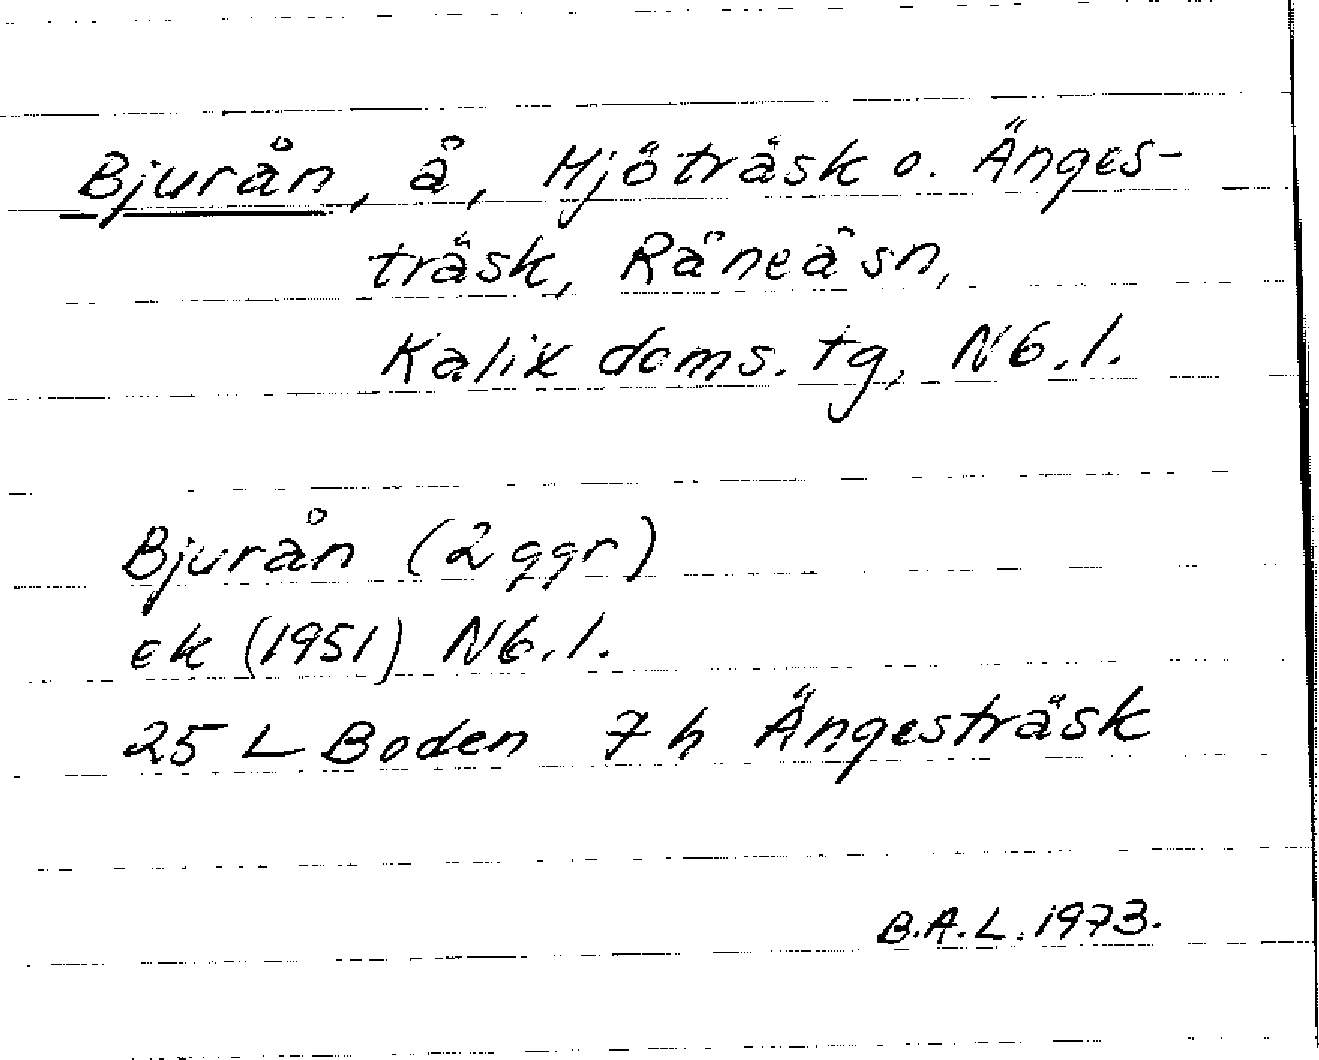 Bjurån, å, Mjöträsk o. Änges-
träsk, Råneåsn,
Kalix doms. tg, N6.1.
Bjurån (2 ggr)
ek (1951) N6.1.
25 L Boden 7 h Ängesträsk
B.A.L. 1973.